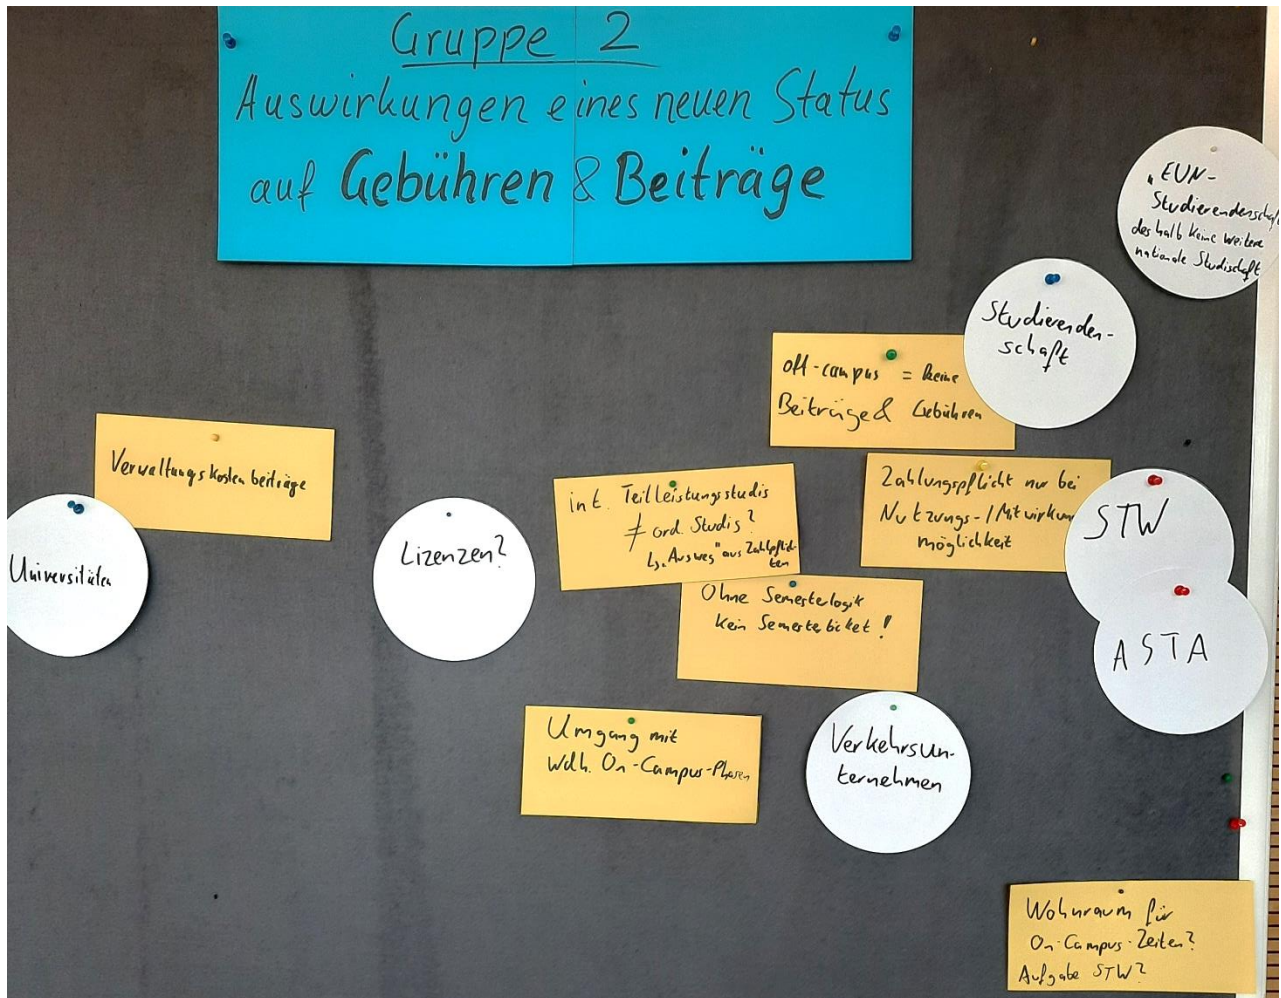 Gruppe 2
Auswirkungen eines neuen Status
auf Gebühren & Beiträge
"EUN-
Studierendenschaft
deshalb keine weitere
nationale Studischaft
Studierenden-
schaft
off-campus = keine
Beiträge & Gebühren
Verwaltungskostenbeiträge
Universitäten
Lizenzen?
int. Teilleistungsstudis
≠ ord. Studis?
↳ "Ausweg" aus Zahlpflich-
ten
Zahlungspflicht nur bei
Nutzungs-/Mitwirkun
möglichkeit
STW
ASTA
Ohne Semesterlogik
kein Semesterticket!
Umgang mit
Wdh. On-Campus-Phasen
Verkehrsun-
ternehmen
Wohnraum für
On-Campus-Zeiten?
Aufgabe STW?